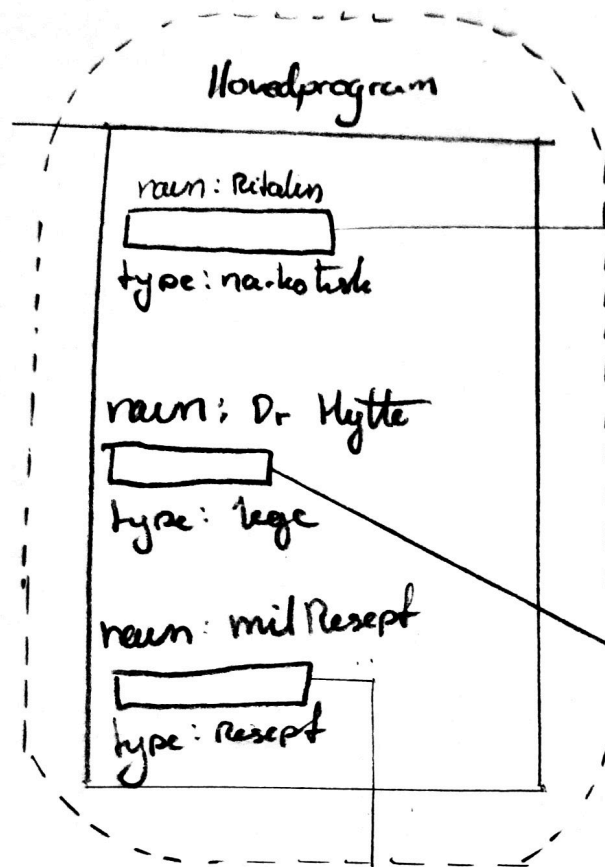 Hovedprogram
navn: Ritalin
type: narkotisk
navn: Dr Hytte
type: lege
navn: milResept
type: Resept